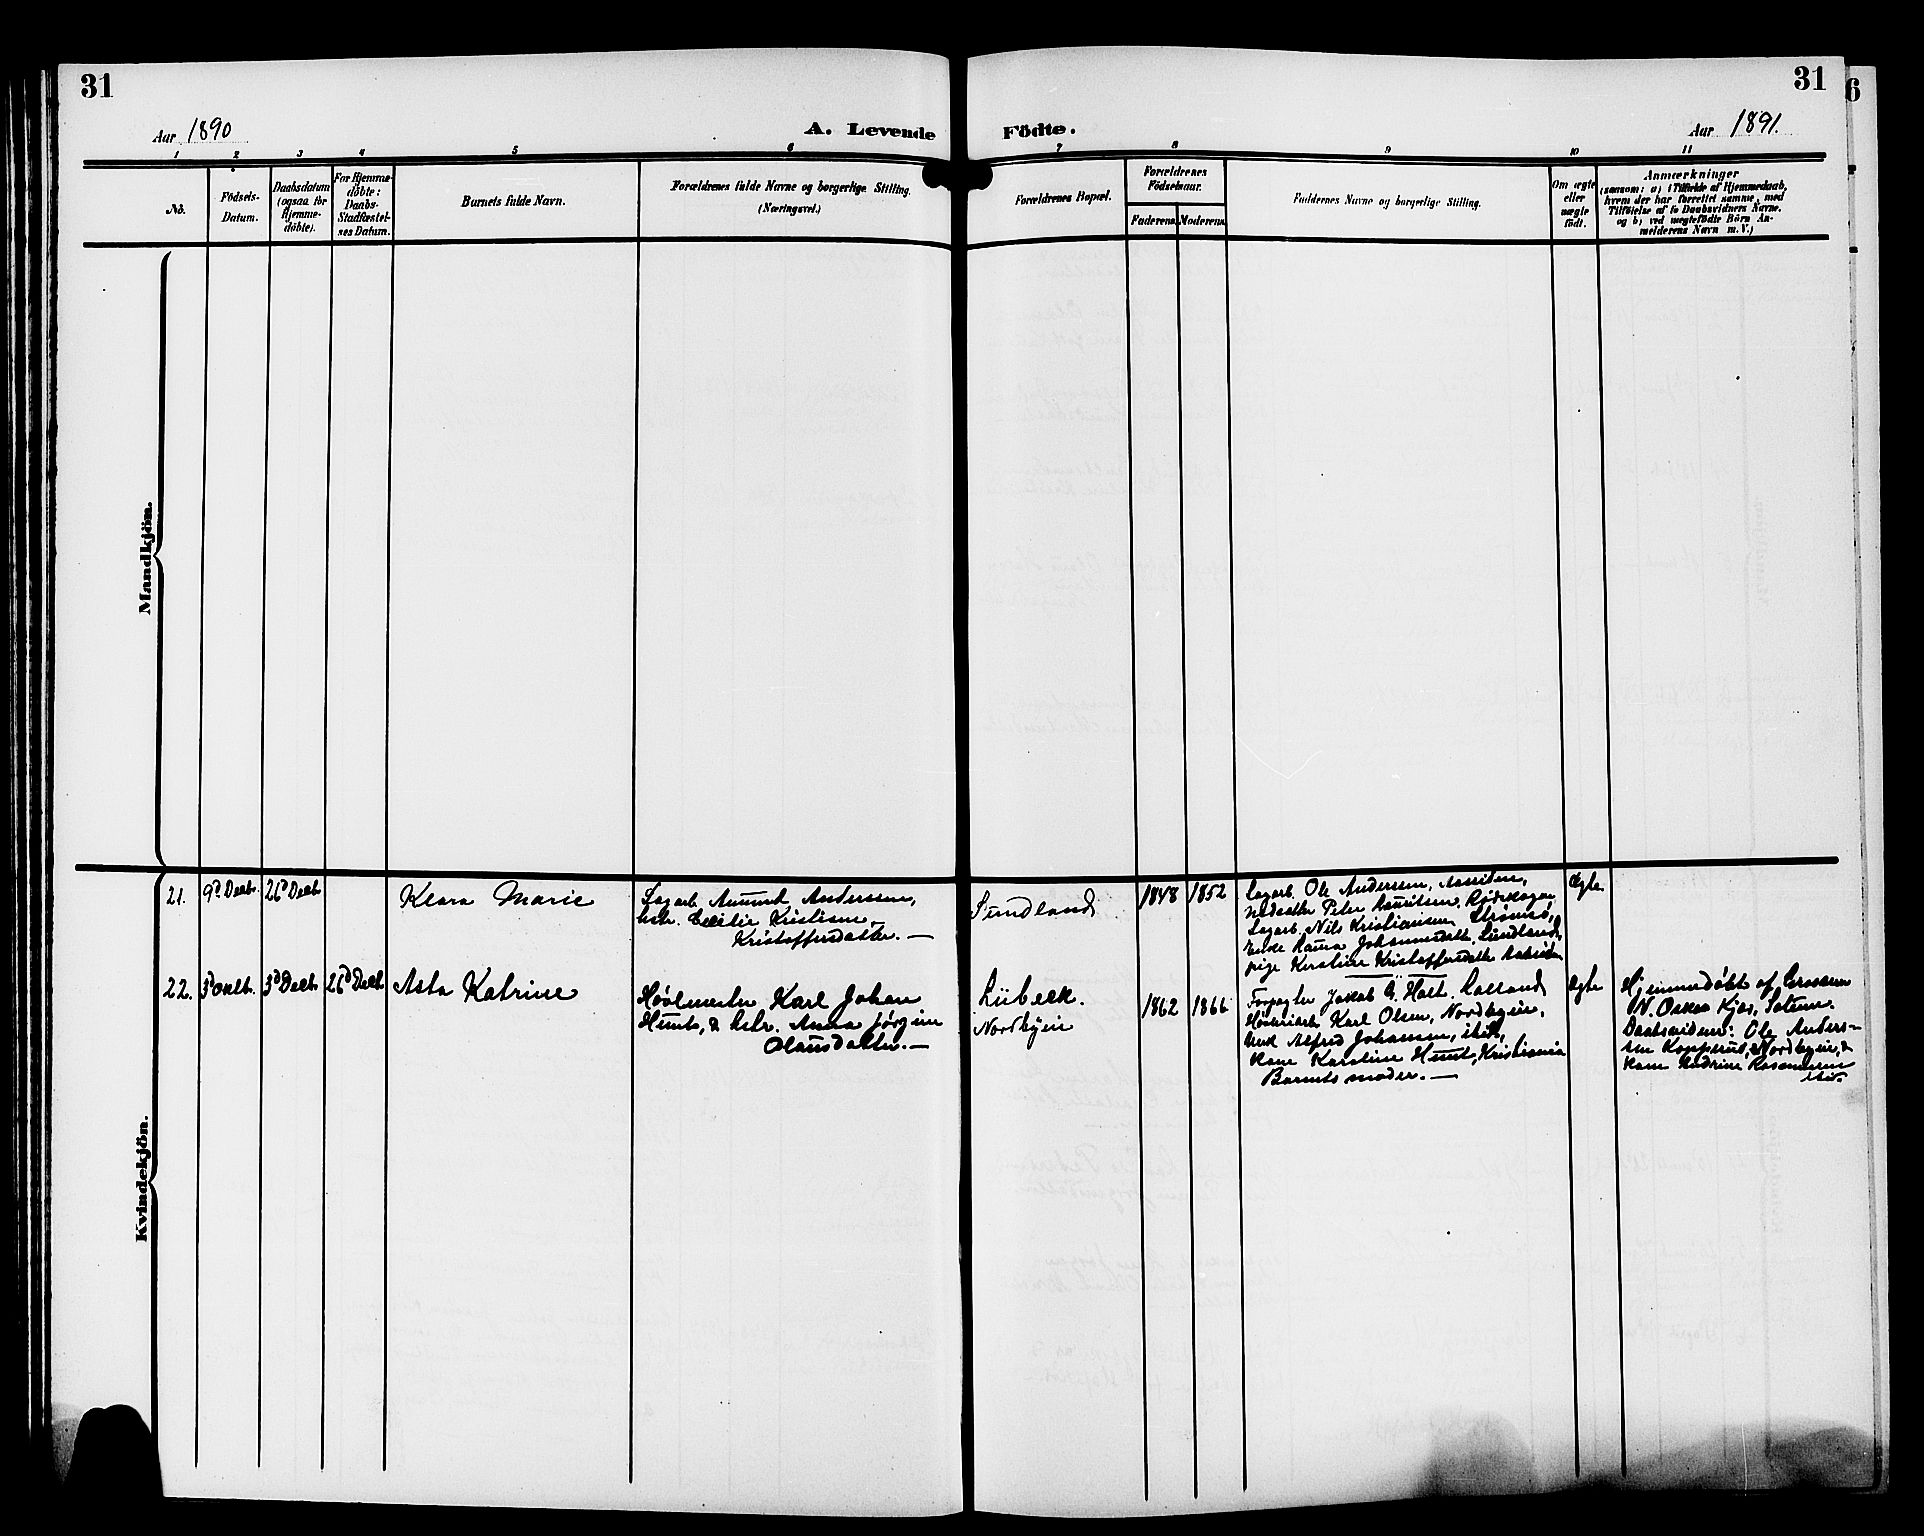 31
31
6
Aar 1890
A. Levende
Födte.
Aar 1891.
1
2
3
4
5
6
7
8
9
10
11
No.
Födsels-
Datum.
Daabsdatum
(ogsaa för
Hjemme-
döbte).
For Hjemme-
döbte:
Daabs-
Stadfæstel-
ses Datum.
Barnets fulde Navn.
Forældrenes fulde Navne og borgerlige Stilling.
(Næringsvei.)
Forældrenes Bopæl.
Forældrenes
Födselsaar.
Faderens.
Moderens.
Faddernes Navne og borgerlige Stilling.
Om ægte
eller
uægte
födt.
Anmærkninger
(saasom: a) i Tilfælde af Hjemmedaab,
hvem der har forrettet samme, med
Tilföielse af to Daabsvidners Navne.
og b) ved uægtefödte Börn An-
melderens Navn m. V.)
Mandkjön.
Kvindekjön.
21.
9d Decbr.
26d Decbr
Klara Marie
Sagarb. Amund Anderssen,
hstr. Cecilie Kristiane
Kristoffersdatter. —
Sundland
1848
1852
Sagarb. Ole Anderssen,
Peter Lauritsen,
Sagarb. Nils Kristiansen Strømsö,
Enke Johannesdatt. Sundland,
pige Kristoffersdatter
Ægte
22.
3d Decbr.
26d Decbr
Asta Katrine
Høvlmester Karl Johan
Hunt, & hstr. Anna Jörgine
Olausdatter. —
Lübeck.
Nordbyen
1862
1866
Forpagter Jakob G. Holt.
Karl Olsen, Nordbyen,
Alfred Johansen, ibid,
Kone Karoline Hunt, Kristiania
Barnets moder. —
Ægte
Hjemmedöbt af
N. Oskar Kjös,
Daabsvidner: Ole Anders-
sen Kopperud, Nordbyen, &
Kone
ibid.